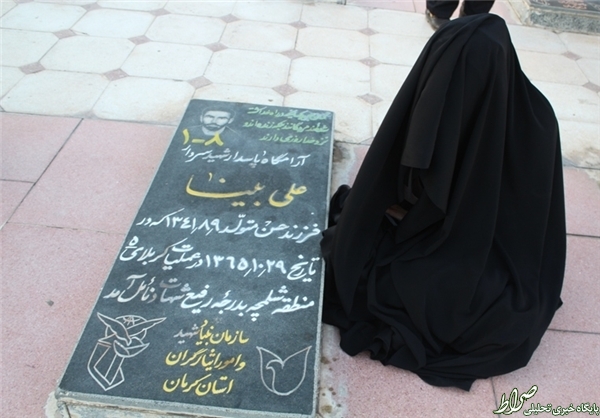 ۱-۸
آرامگاه پاسدار شهید سردار
علی بینا
فرزند حسن متولد ۱۳۴۱٫۸٫۹ که در
تاریخ ۱۳۶۵٫۱۰٫۲۹ در عملیات کربلای ۵
منطقه شلمچه بدرجه رفیع شهادت نائل آمد
سازمان بنیاد شهید
و امور ایثارگران
استان کرمان
صراط
پایگاه خبری تحلیلی